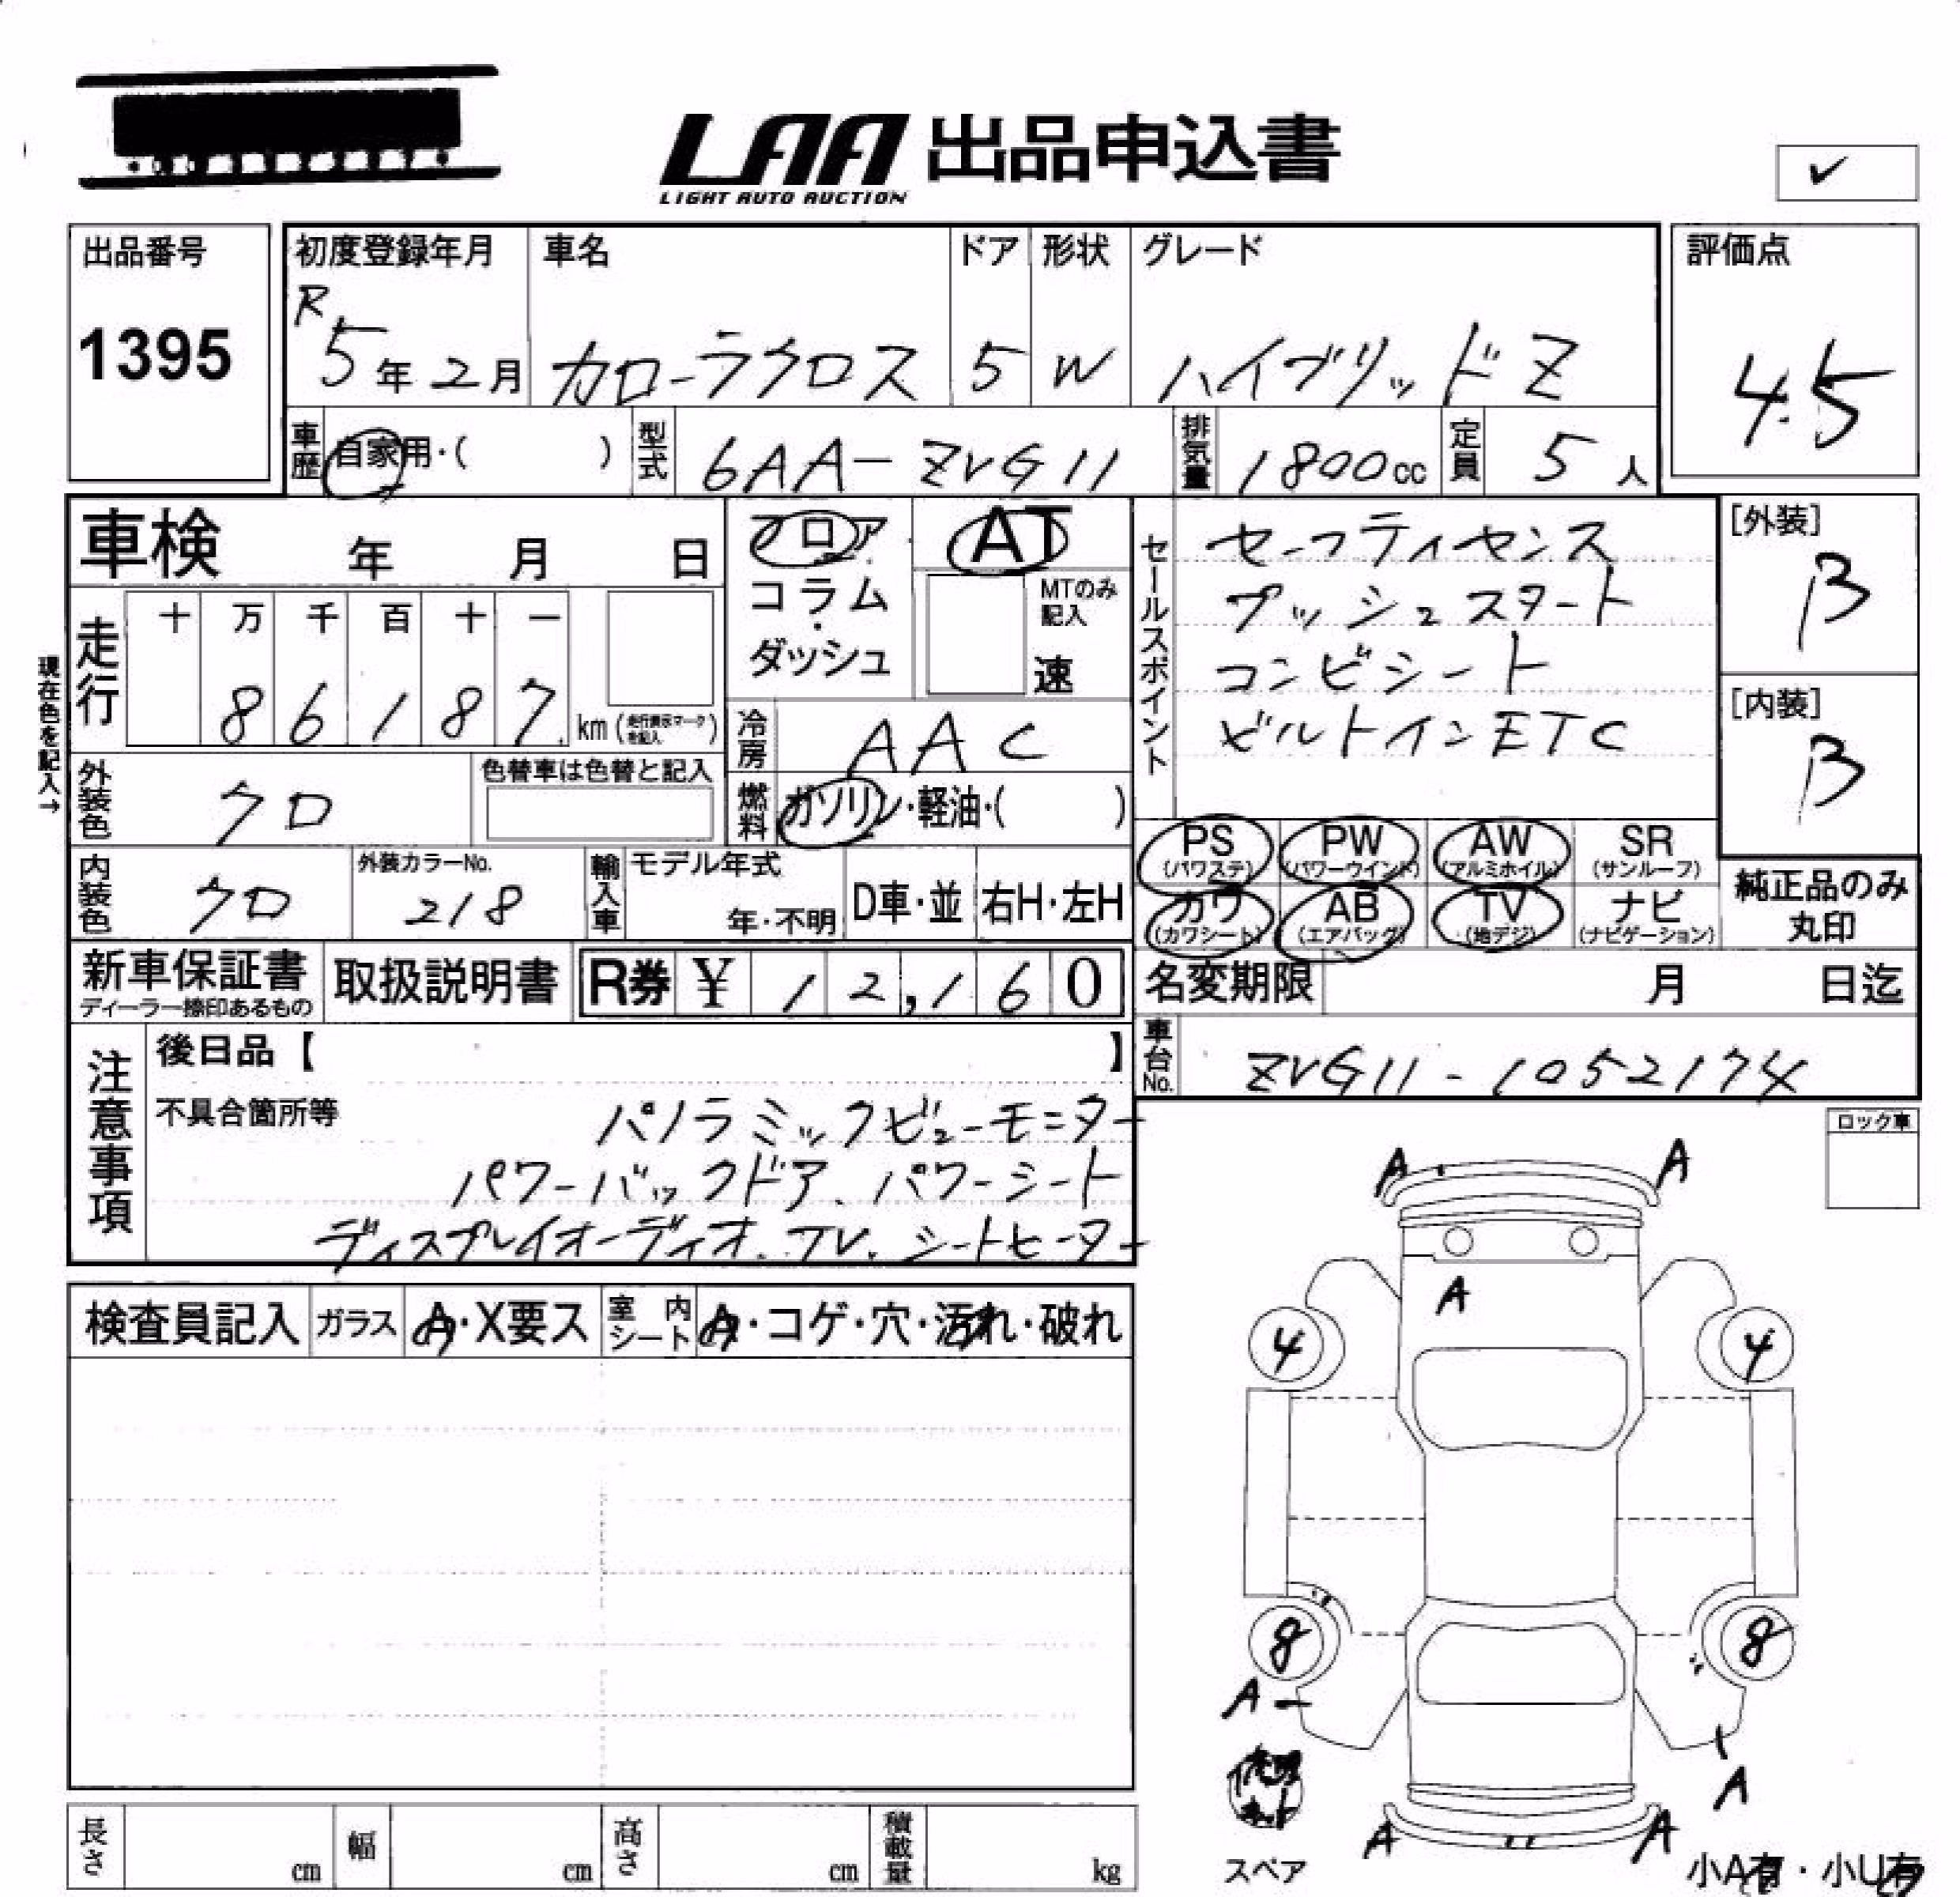 LAA 出品申込書
LIGHT AUTO AUCTION
✓
出品番号
1395
初度登録年月
R
5年2月
車名
カローラクロス
ドア
5
形状
W
グレード
ハイブリッドZ
評価点
4.5
車歴
自家用・( )
型式
6AA-ZVG11
排気量
1800cc
定員
5人
車検 年 月 日
フロア
コラム
・
ダッシュ
AT
MTのみ
記入
速
セールスポイント
セーフティセンス
プッシュスタート
コンビシート
ビルトインETC
[外装]
B
[内装]
B
現在色を記入→
走行
十 万 千 百 十 一
8 6 1 8 7
km(走行表示マークを記入)
冷房
AAC
燃料
ガソリン・軽油・( )
外装色
クロ
色替車は色替と記入
内装色
クロ
外装カラーNo.
218
輸入車
モデル年式
年・不明
D車・並
右H・左H
PS
(パワステ)
PW
(パワーウインド)
AW
(アルミホイル)
SR
(サンルーフ)
カワ
(カワシート)
AB
(エアバッグ)
TV
(地デジ)
ナビ
(ナビゲーション)
純正品のみ
丸印
新車保証書
ディーラー捺印あるもの
取扱説明書
R券 ¥ 12,160
名変期限 月 日迄
車台No.
ZVG11-1052174
注意事項
後日品【 】
不具合箇所等
パノラミックビューモニター
パワーバックドア、パワーシート
ディスプレイオーディオ、TV、シートヒーター
ロック車
検査員記入
ガラス
A・X要ス
室内
シート
A・コゲ・穴・汚れ・破れ
A A
A
4 4
8 8
A
A
修理
キット
A A
スペア
小A有・小U有
長さ cm
幅 cm
高さ cm
積載量 kg